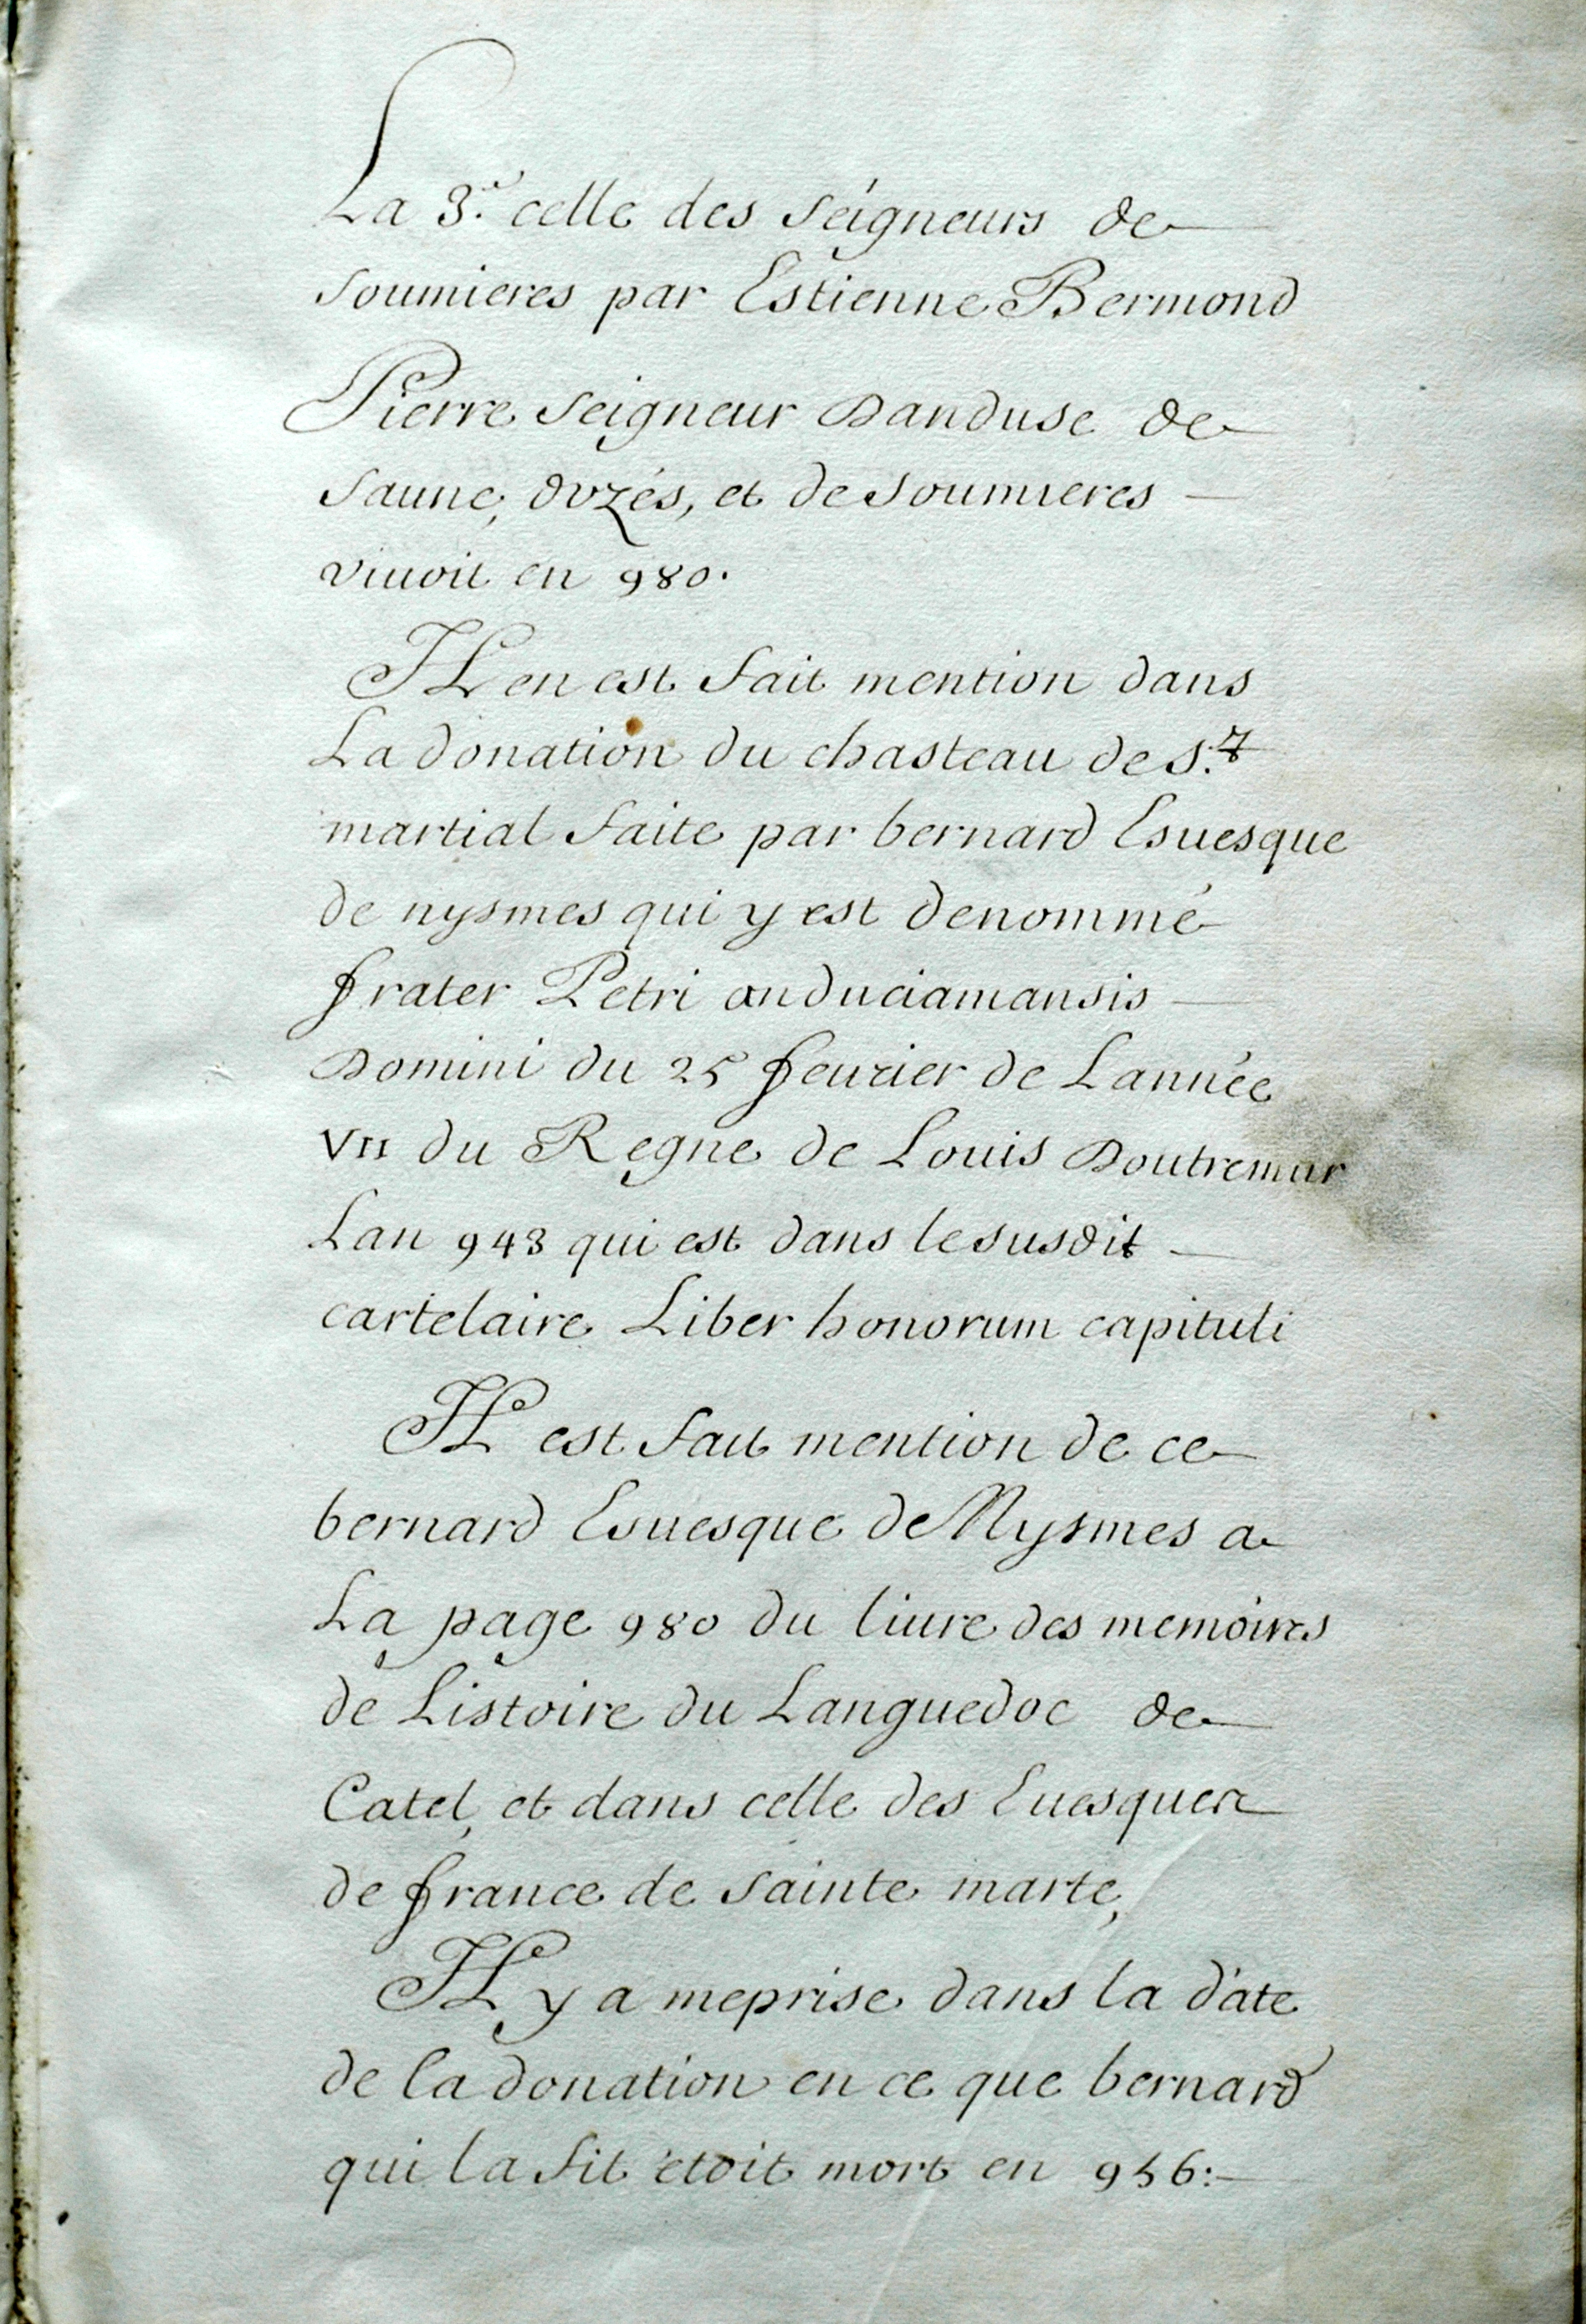 La 3.e celle des séigneurs de
soumieres par Estienne Bermond
Pierre seigneur Danduse de
saune, dvzés, et de soumieres
viuoit en 980.
IL en est fait mention dans
La donation du chasteau de S.t
martial faite par bernard Esuesque
de nysmes qui y est denommé
frater Petri anduciamansis
Domini du 25 feurier de Lannée
VII du Regne de Louis Doutremur
Lan 943 qui est dans le susdit
cartelaire Liber honorum capituli
IL est fait mention de ce
bernard Esuesque de Nysmes a
La page 980 du liure des memoires
de Listoire du Languedoc de
Catel, et dans celle des Euesques
de france de sainte marte,
IL y a meprise dans la date
de la donation en ce que bernard
qui la fit etoit mort en 956: